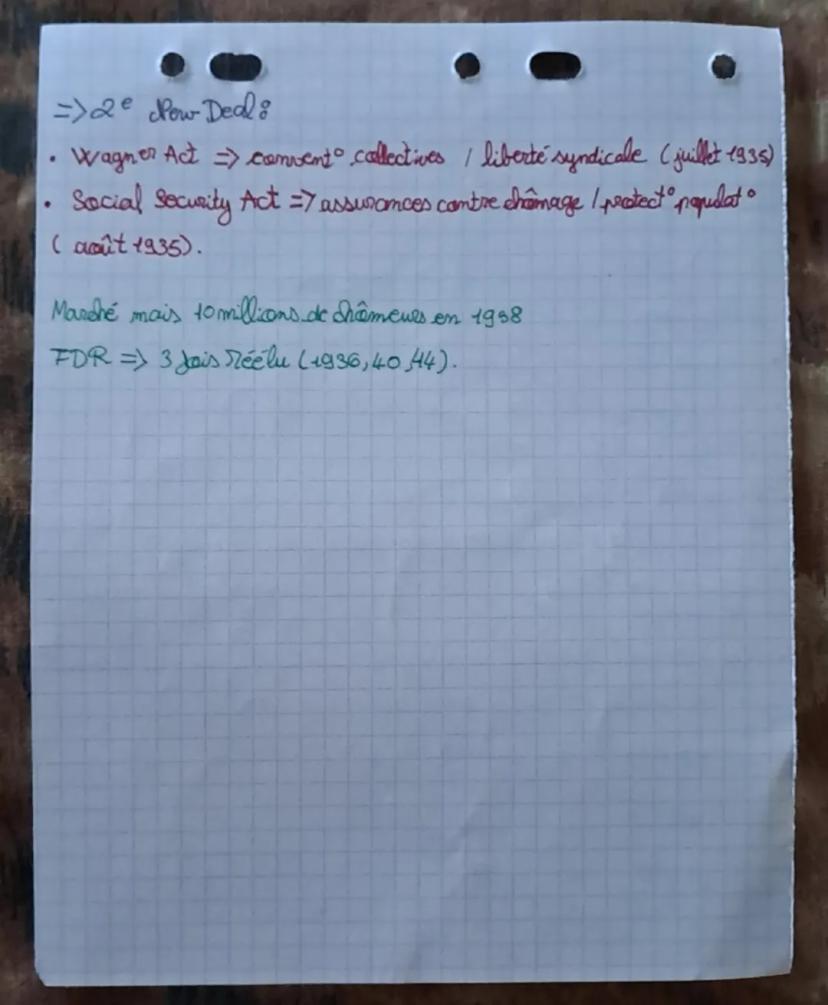 => 2e New Deal :
• Wagner Act => convent° collectives / liberté syndicale (juillet 1935)
• Social Security Act => assurances contre chômage / protect° populat°
(août 1935).
Marché mais 10 millions de chômeurs en 1938
FDR => 3 fois réélu (1936, 40, 44).